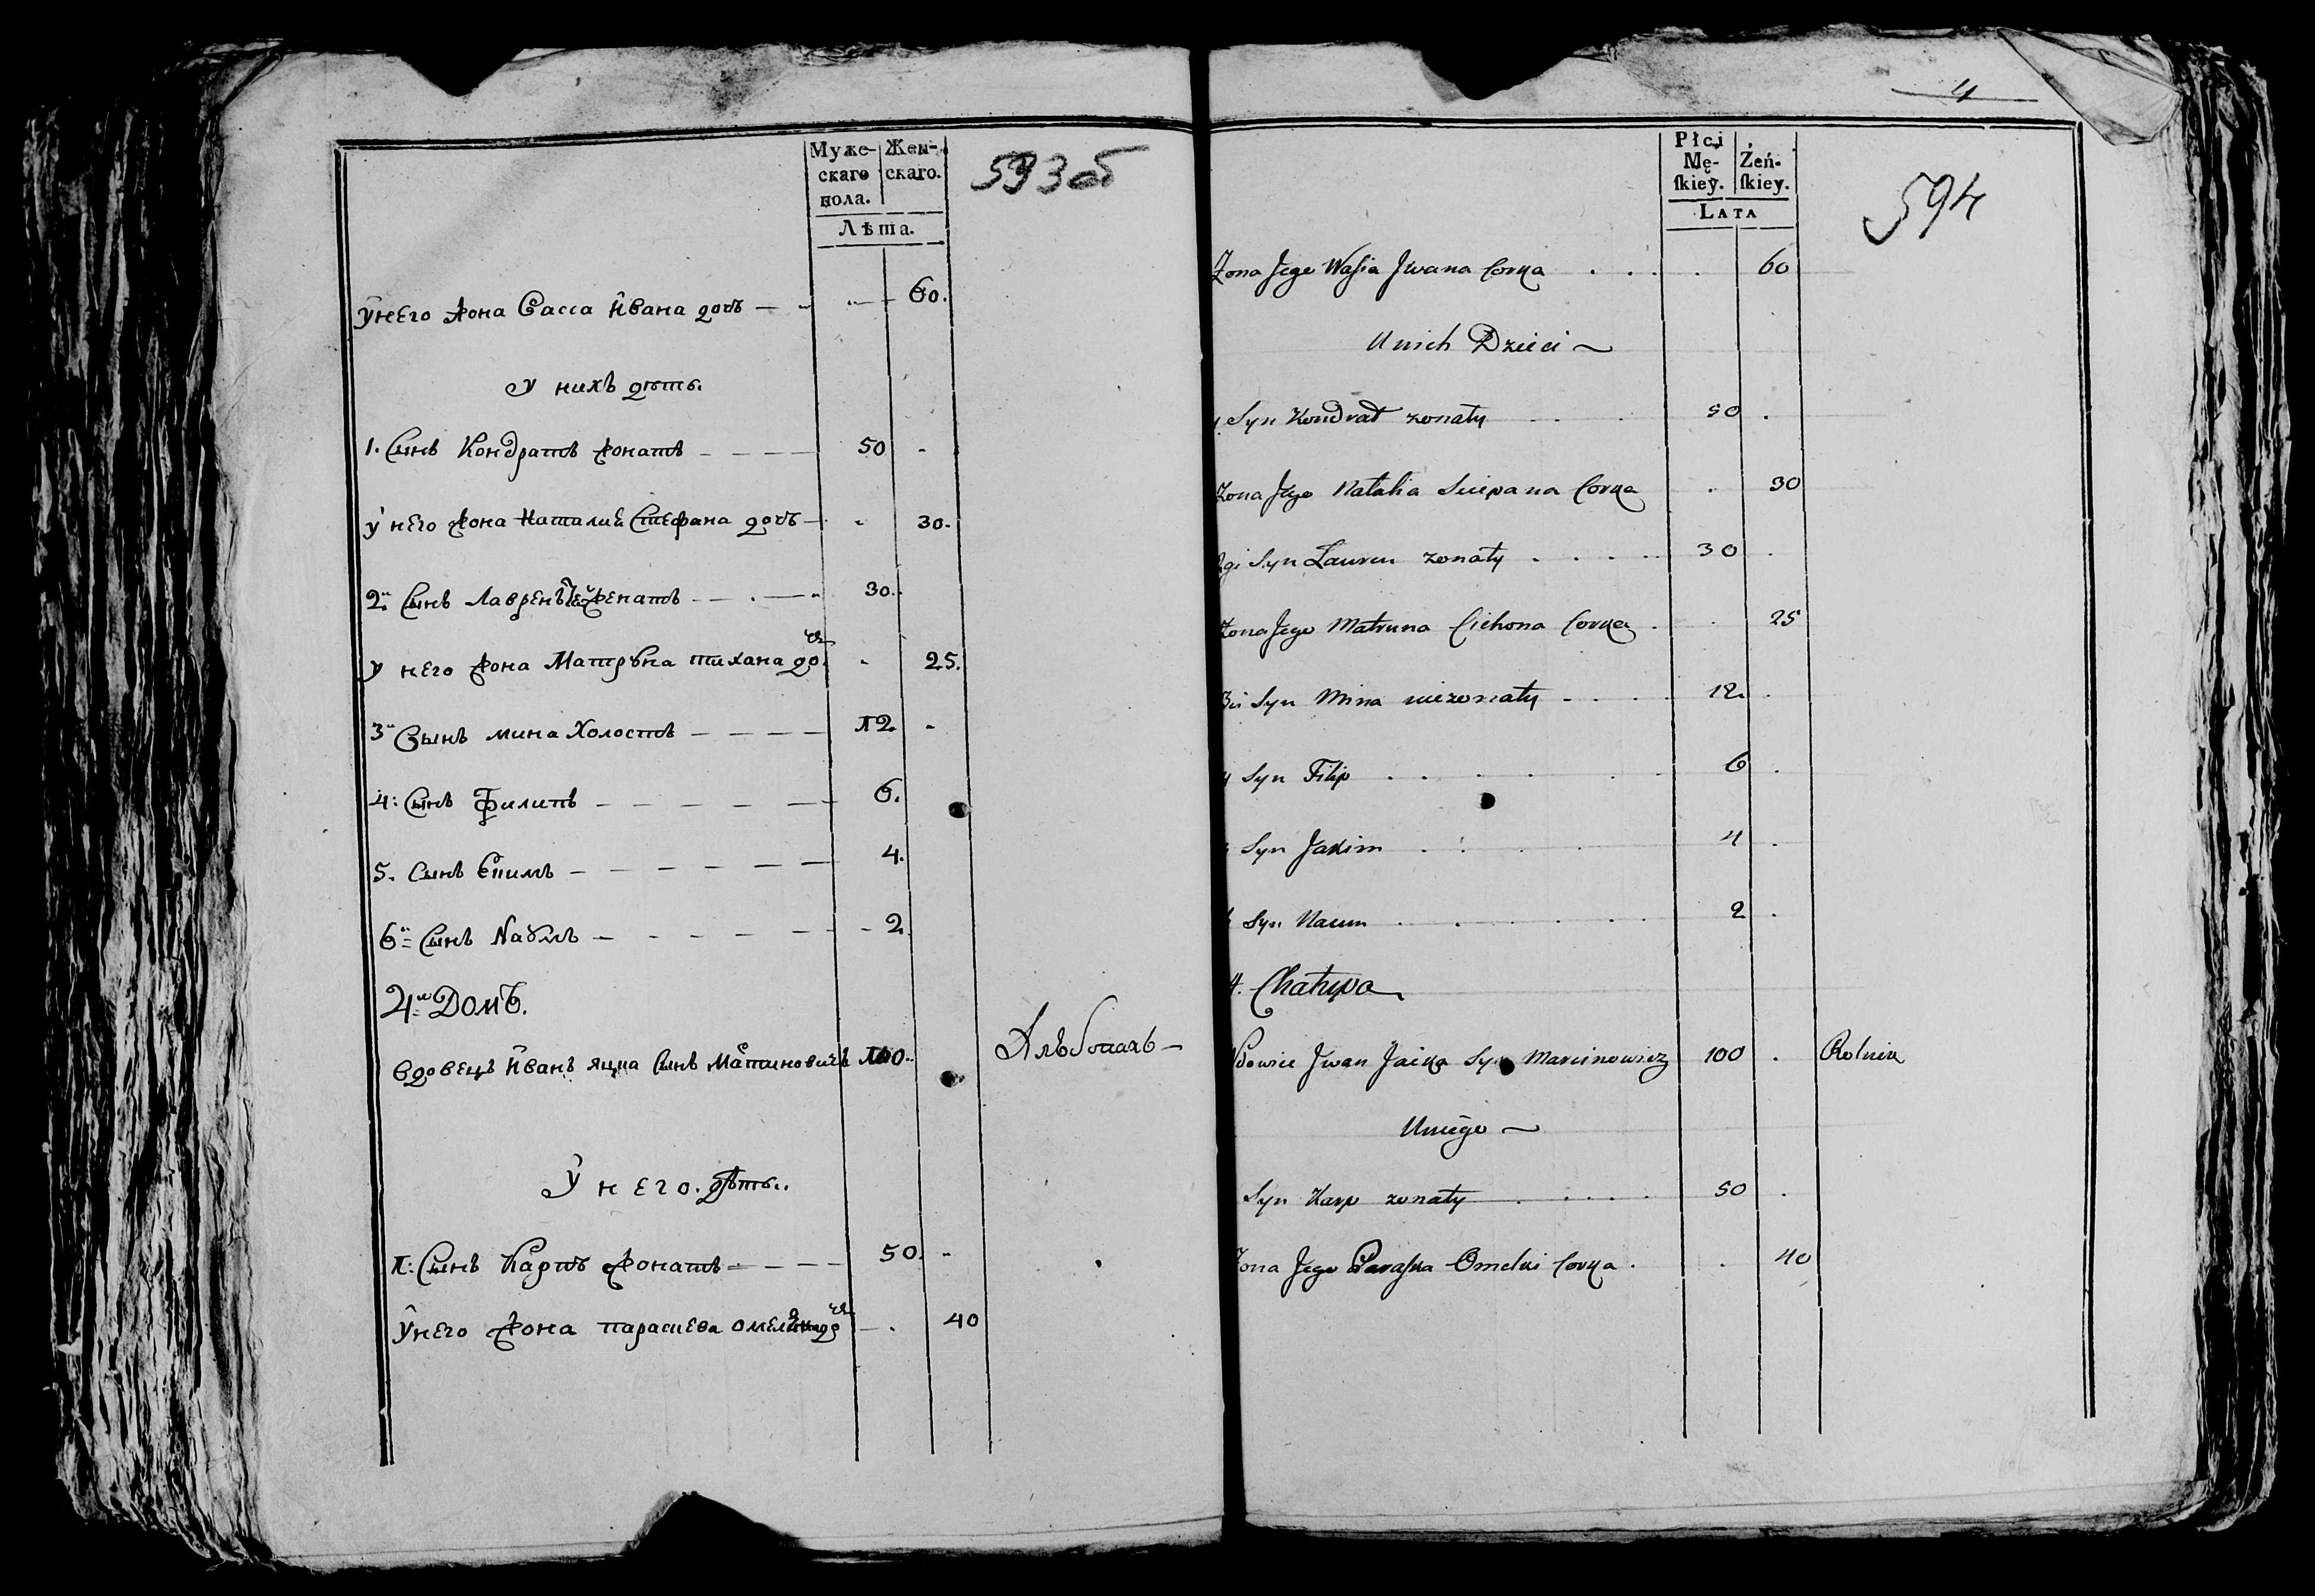 Муже- Жен-
скаго скаго.
пола.
Лѣта.
593 об
у него жона Васса Ивана дочь — 60.
У нихъ дѣти.
1. Сынъ Кондратъ жонатъ — 50 -
у него жона Наталия Стефана дочь — - 30.
2й Сынъ Лаврентей женатъ — 30.
у него жона Матрына тихана доч. - 25.
3й Сынъ мина Холостъ — 12 -
4: Сынъ Филипъ — 6.
5. Сынъ Еѳимъ — 4.
6й Сынъ Наумъ — 2.
4й Домъ.
вдовецъ Иванъ яцка Сынъ 100.
У него. дѣти.
1: Сынъ Карпъ жонатъ — 50. -
У него жона парасиева - 40
4
Płci
Mę- Żeń-
skiey. skiey.
LATA
594
Zona Jego Wasia Jwana Corka . . . . 60
Unich Dzieci ~
Syn Kondrat zonaty . . . 50 .
Zona Jego Natalia Sciepana Corka . 30
2gi Syn Lauren zonaty . . . . 30 .
Zona Jego Matruna Cichona Corka . . 25
3ci Syn Mina niezonaty . . . . 12. .
Syn Filip . . . . . 6 .
Syn Jakim . . . . 4 .
Syn Naum . . . . . 2 .
4. Chatupa
Wdowiec Jwan Jacka Syn Marcinowicz 100 . Rolnik
Uniego ~
Syn Karp zonaty . . . . 50 .
Zona Jego Paraska Omelki Corka . . 40